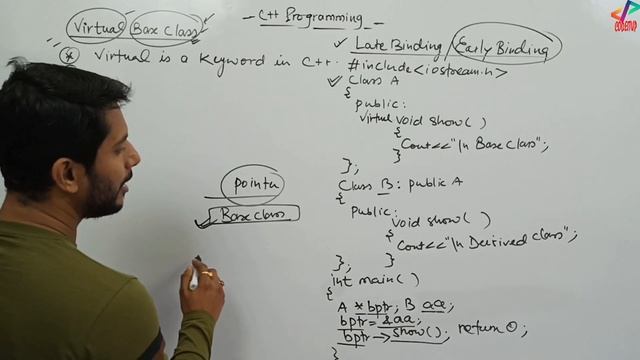 - C++ Programming -
Virtual Base Class
* Virtual is a keyword in C++.
Late Binding / Early Binding
#include<iostream.h>
Class A
{
public:
virtual void show( )
{
Cout<<"\n Base Class";
}
};
Class B : public A
{
public:
void show( )
{
Cout<<"\n Derived Class";
}
};
int main( )
{
A *bptr; B aa;
bptr = &aa;
bptr → show(); return 0;
}
pointer
Base class